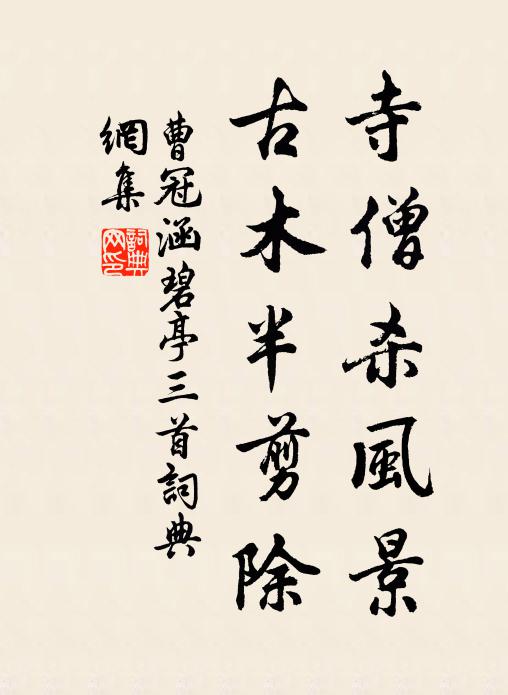 寺僧杀風景
古木半剪除
曹冠涵碧亭三首詞典
網集
詞典
网印